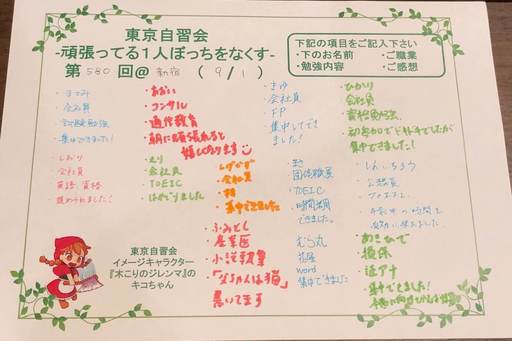 東京自習会
-頑張ってる1人ぼっちをなくす-
第 580 回@ 新宿 ( 9/1 )
下記の項目をご記入下さい
・下のお名前 ・ご職業
・勉強内容 ・ご感想
会社員
集中できました!
あおい
コンサル
通信教育
朝に頑張れると
嬉しくなります
まゆ
会社員
FP
集中してでき
ました!
ひかり
会社員
資格勉強
初参加でドキドキでしたが
集中できました!
しおり
会社員
英語、資格
進められました!
えり
会社員
TOEIC
はかどりました
しげかず
会社員
集中できました
まき
団体職員
TOEIC
時間通り
できました。
しんいちろう
公務員
ふみとし
産業医
小説執筆
「父ちゃんは猫」
書いてます
むら丸
word
集中できました
あきひで
損保
集中できました!
東京自習会
イメージキャラクター
『木こりのジレンマ』の
キコちゃん